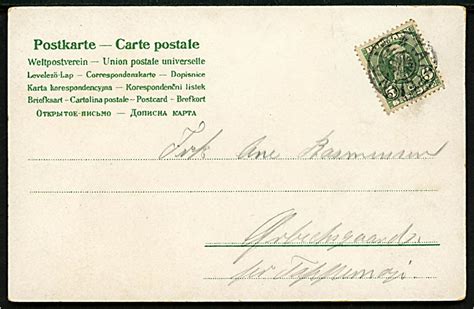 Postkarte — Carte postale
Weltpostverein — Union postale universelle
Levelező-Lap — Correspondenskarte — Dopisnice
Karta korespondencyjna — Korespondenční listek
Briefkaart — Cartolina postale — Postcard — Brefkort
Открытое-письмо — Дописна карта
5 5
Frk Ane Rasmussen
pr Tappernøje.